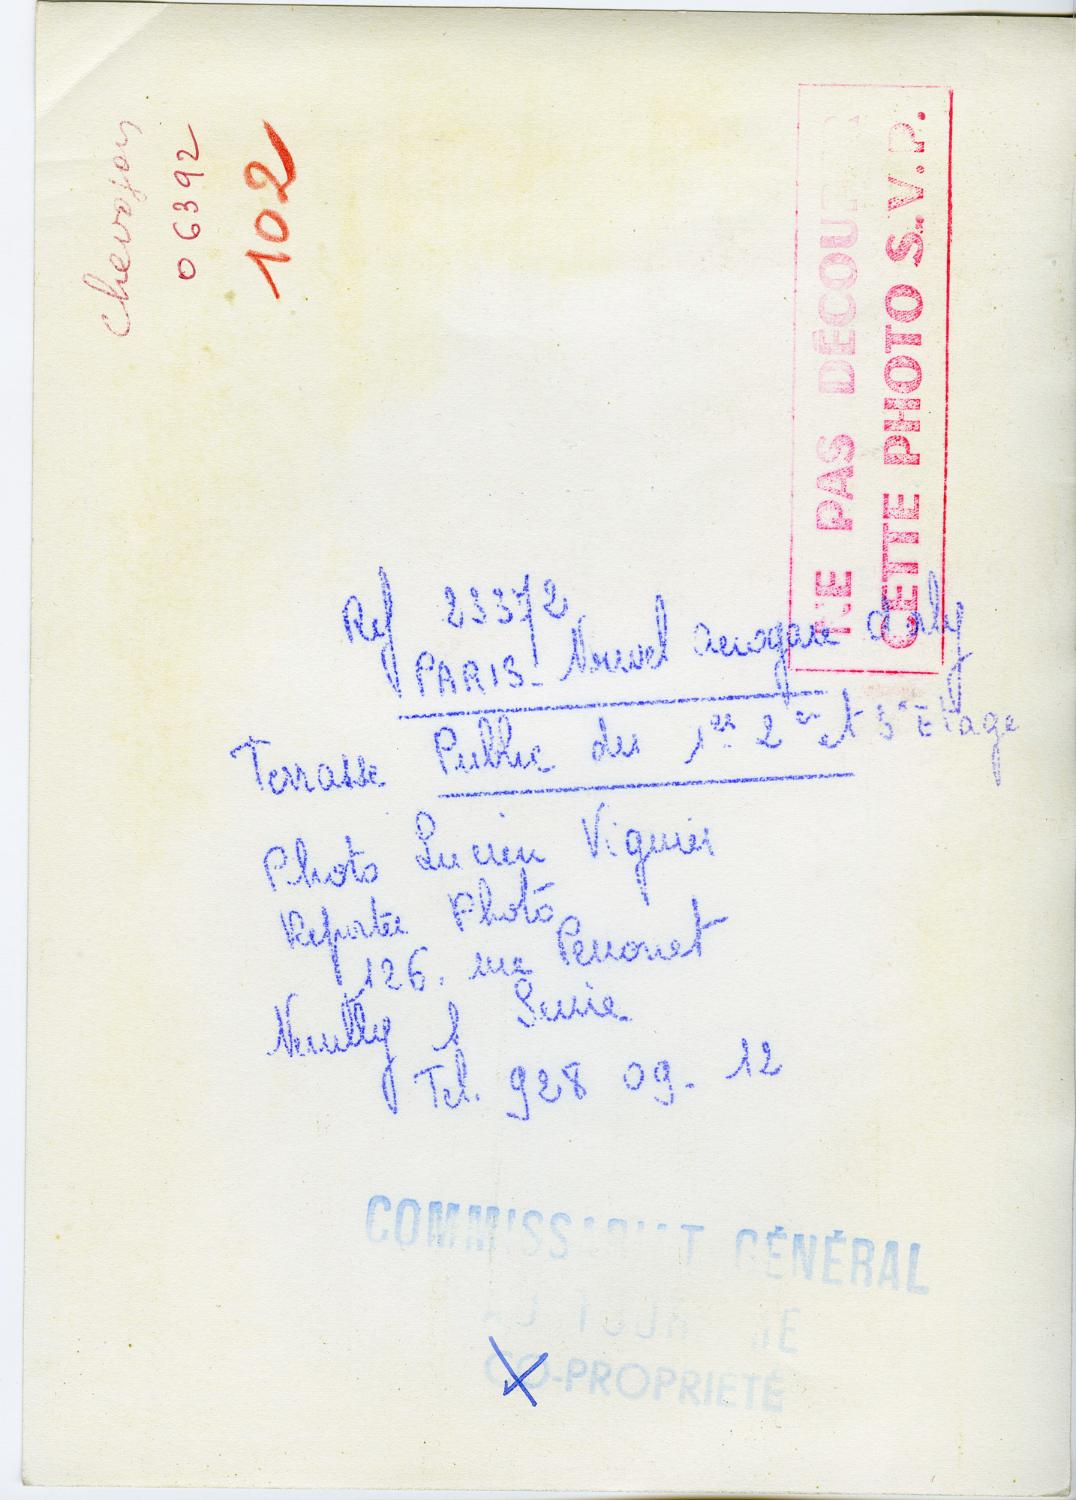 Chevojon
06392
102
NE PAS DÉCOUP
CETTE PHOTO S.V.P.
Ref 23372
PARIS - Nouvel aerogare d'orly
Terrasse Public du 1er 2e et 3e Etage
Photo Lucien Viguier
Reporter Photo
126. rue Perronet
Neuilly s Seine
Tel. 928 09 - 12
COMMISSARIAT GÉNÉRAL
AU TOURISME
CO-PROPRIÉTÉ